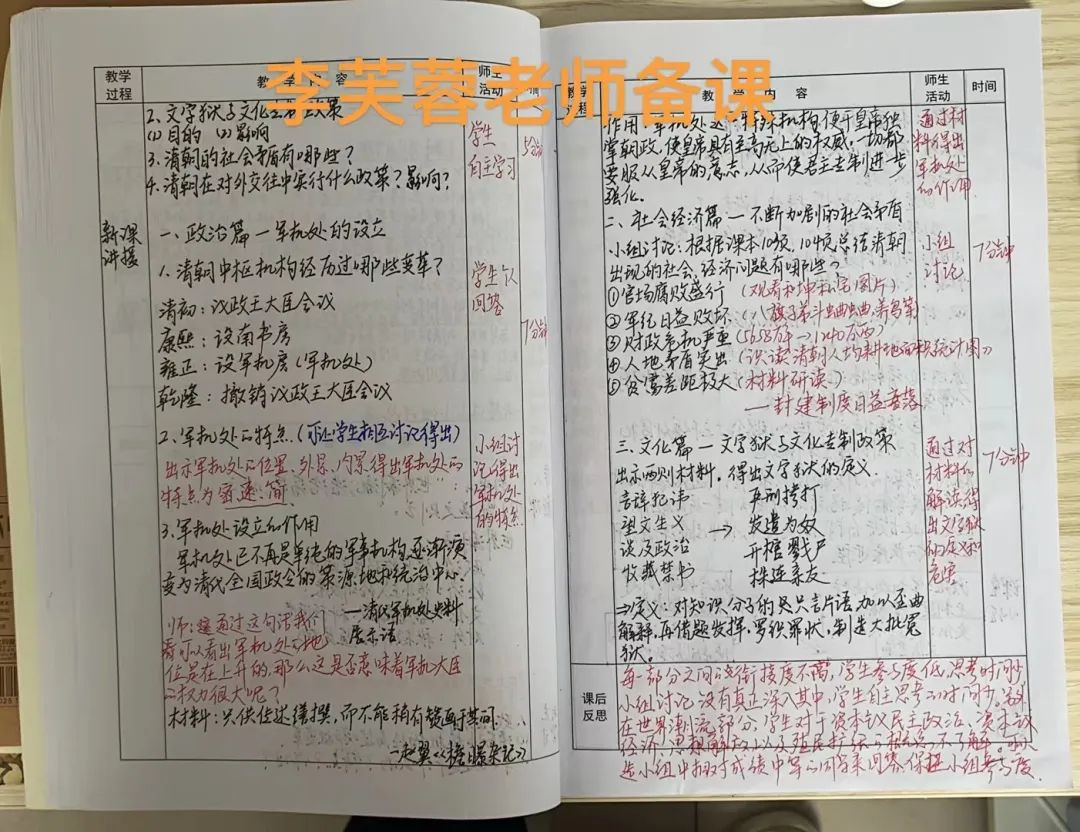 李芙蓉老师备课
教学过程
教学内容
师生活动
2.文字狱与文化专制政策
(1)目的 (2)影响
3.清朝的社会矛盾有哪些?
4.清朝在对外交往中实行什么政策?影响?
学生自主学习
5分钟
新课讲授
一、政治篇—军机处的设立
1.清朝中枢机构经历过哪些变革?
清初:议政王大臣会议
康熙:设南书房
雍正:设军机房(军机处)
乾隆:撤销议政王大臣会议
学生个人回答
7分钟
2.军机处的特点.(可让学生相互讨论得出)
出示军机处的位置、外景、内景得出军机处的
特点为密、速、简
小组讨论得出军机处的特点
3.军机处设立的作用
军机处已不再是单纯的军事机构,逐渐演
变为清代全国政令的策源地和统治中心.
—清代军机处史料
展示语
师:通过这句话我们
可以看出军机处的地
位是在上升的,那么这是否意味着军机大臣
的权力很大呢?
材料:只供传述缮撰,而不能稍有赞画于其间
—赵翼《檐曝杂记》
教学过程
教学内容
师生活动
时间
作用:军机处这一特殊机构便于皇帝独
掌朝政,使皇帝具有至高无上的权威,一切都
要服从皇帝的意志,从而使君主专制进一步
强化.
通过材料得出军机处的作用
二、社会经济篇—不断加剧的社会矛盾
小组讨论:根据课本103页、104页总结清朝
出现的社会、经济问题有哪些?
①官场腐败盛行 (观看和珅私宅图片)
②军纪日益败坏 (八旗子弟斗蛐蛐、养鸟等)
③财政危机严重
④人地矛盾突出 (识读《清朝人均耕地面积统计图》)
⑤贫富差距极大 (材料研读)
—封建制度日益衰落
小组讨论
7分钟
三、文化篇—文字狱与文化专制政策
出示两则材料,得出文字狱的定义
言辞犯讳 再刑拷打
望文生义 → 发遣为奴
谈及政治 开棺戮尸
收藏禁书 株连亲友
⇒定义:对知识分子的只言片语加以歪曲
解释,再借题发挥,罗织罪状,制造大批冤
狱。
通过对材料的解读得出文字狱的定义和危害
7分钟
课后反思
每一部分之间的衔接度不高,学生参与度低,思考时间少
小组讨论没有真正深入其中,学生自主思考的时间少,另外
在世界潮流部分,学生对于资本主义民主政治、资本主义
经济、思想解放以及殖民扩张的相关不了解。
小组中抽成绩中等的同学来回答,保证小组参与度.